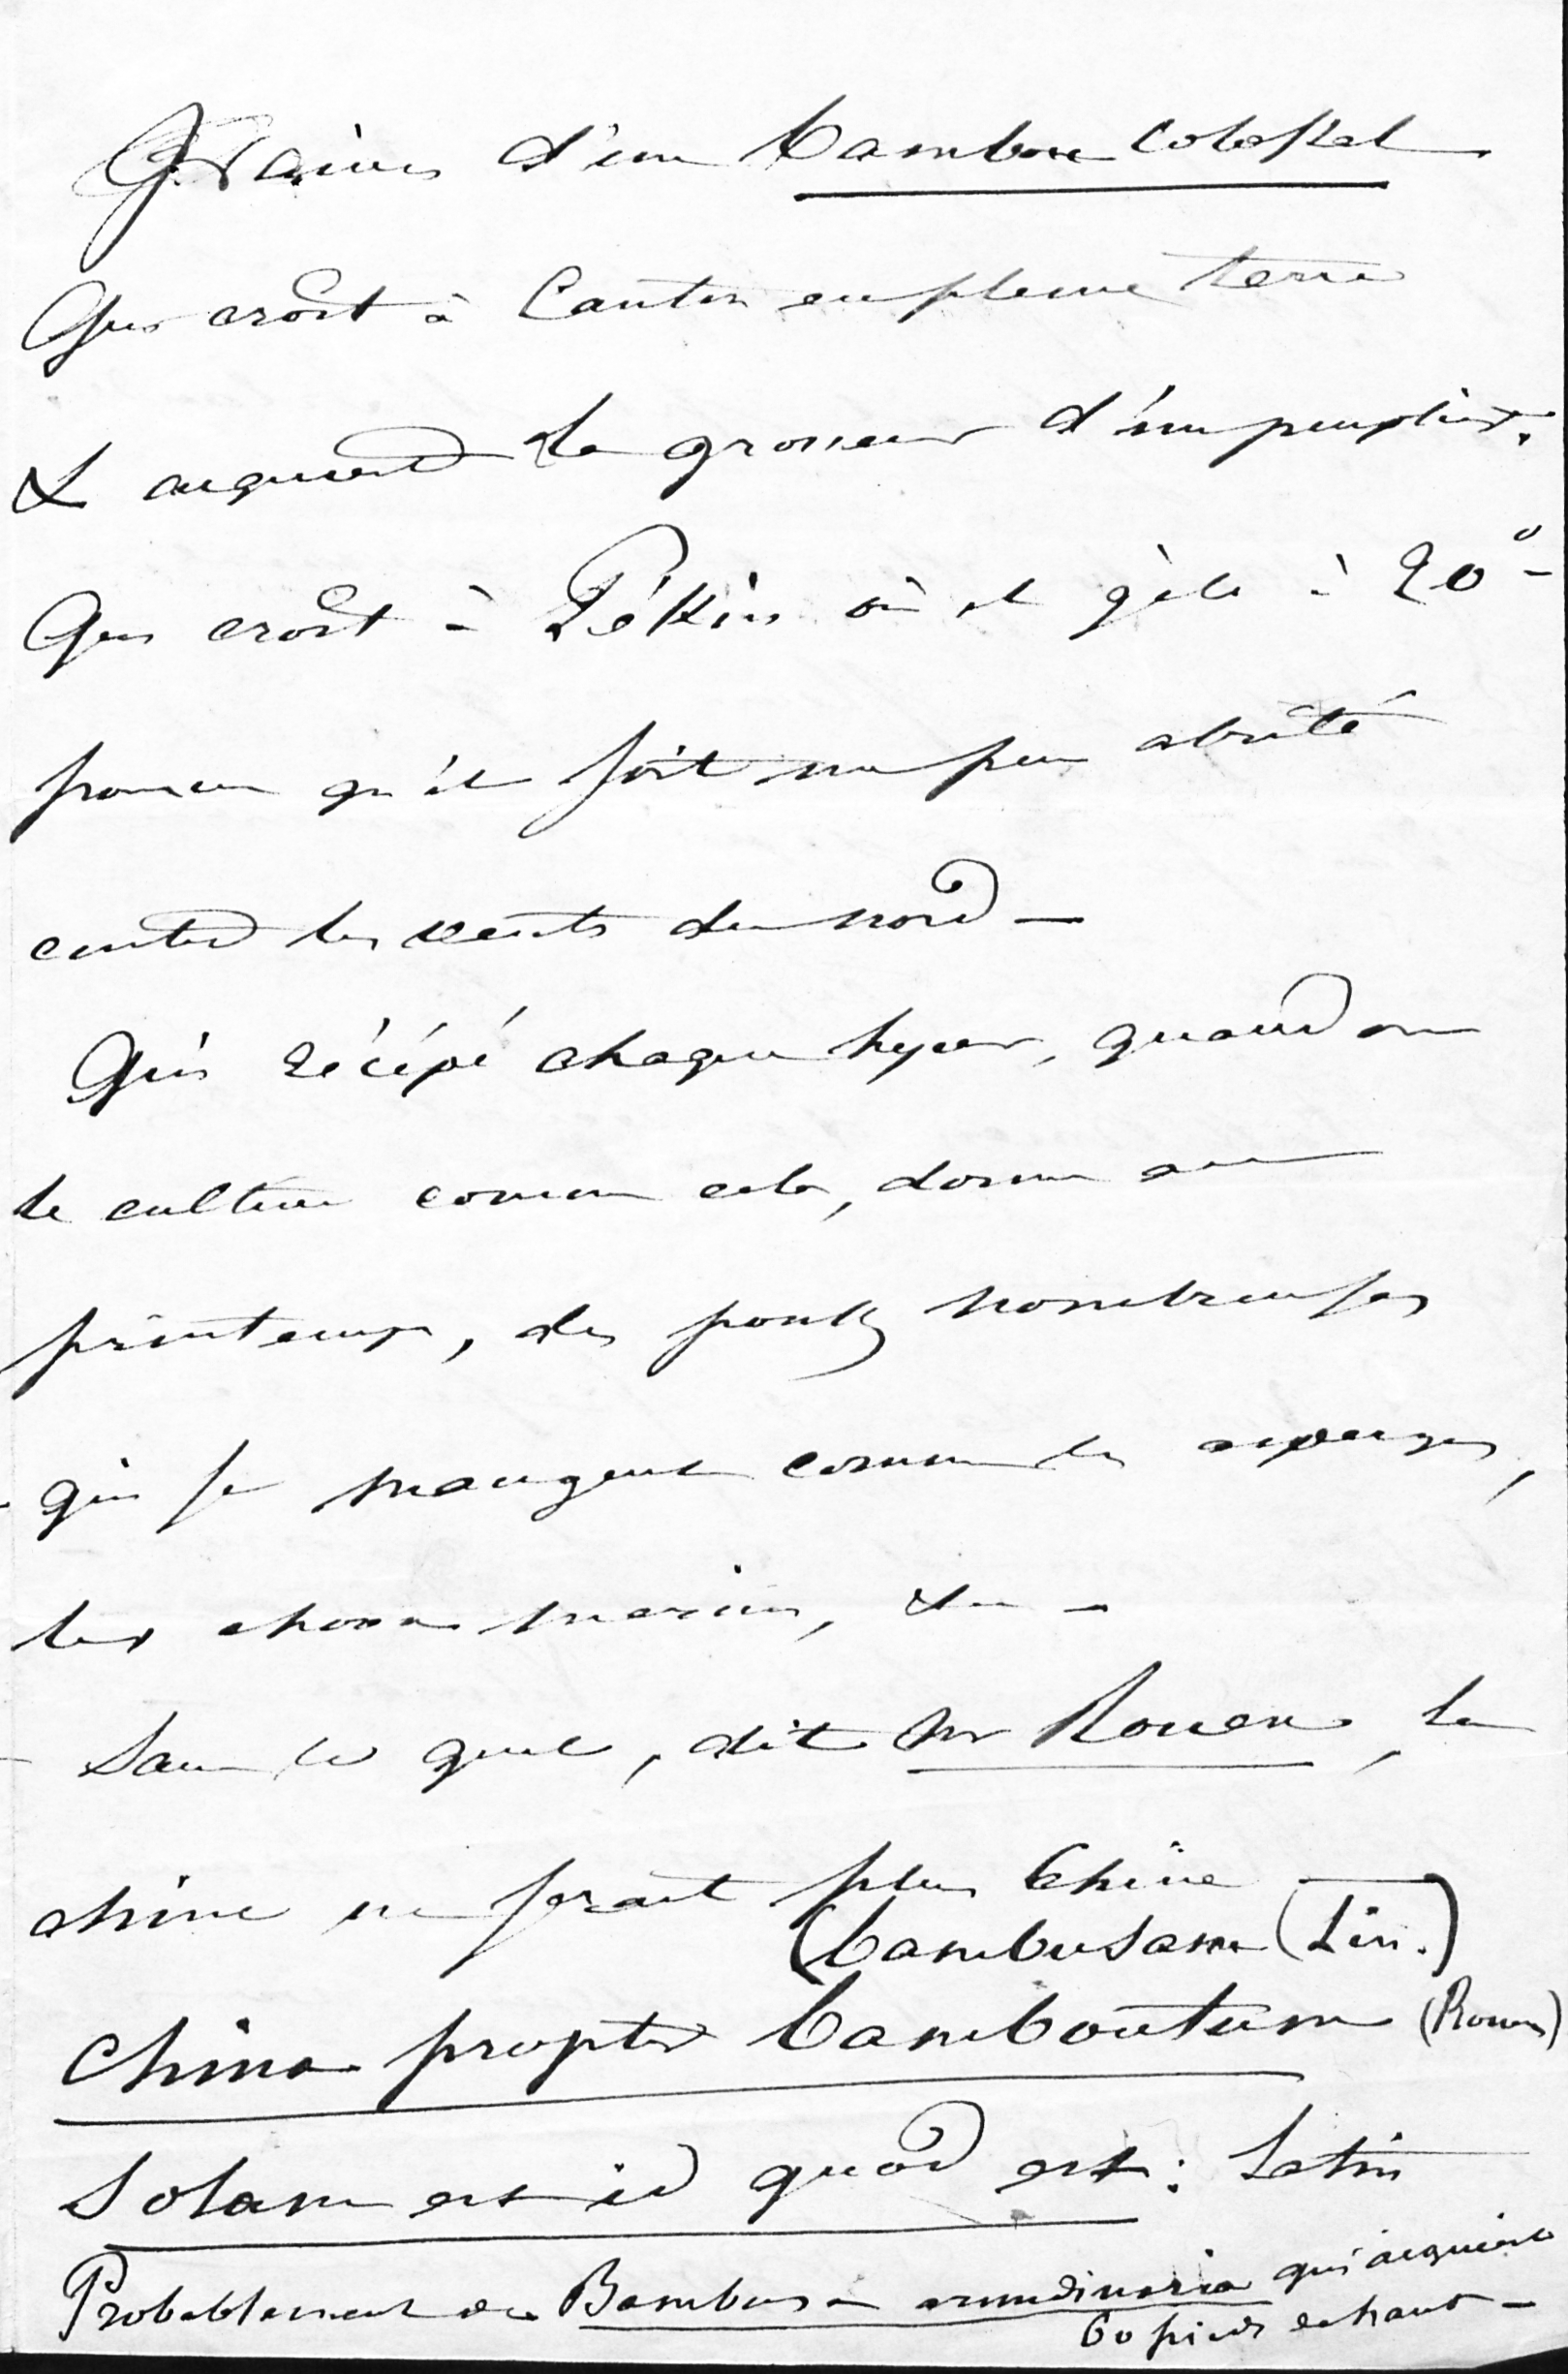 Graines d'un bambou colossal
Qui croît à Canton en pleine terre
& acquiert la grosseur d'un peuplier.
Qui croît à Pékin où il gèle à 20° -
pourvu qu'il soit un peu abrité
contre les vents du nord -
Qui récépé chaque hyver, quand on
le cultive comme cela, donne au
printemps, des pousses nombreuses
qui se mangent comme les asperges,
les choux marins, &c -
Sans le quel, dit Mr Rouen, la
chine ne serait plus Chine
(bambusam (Lin.)
China propter bamboutum (Rouen)
Solam est id quod est: Latin
Probablement le Bambusa arundinaria qui acquiert
60 pieds de haut -